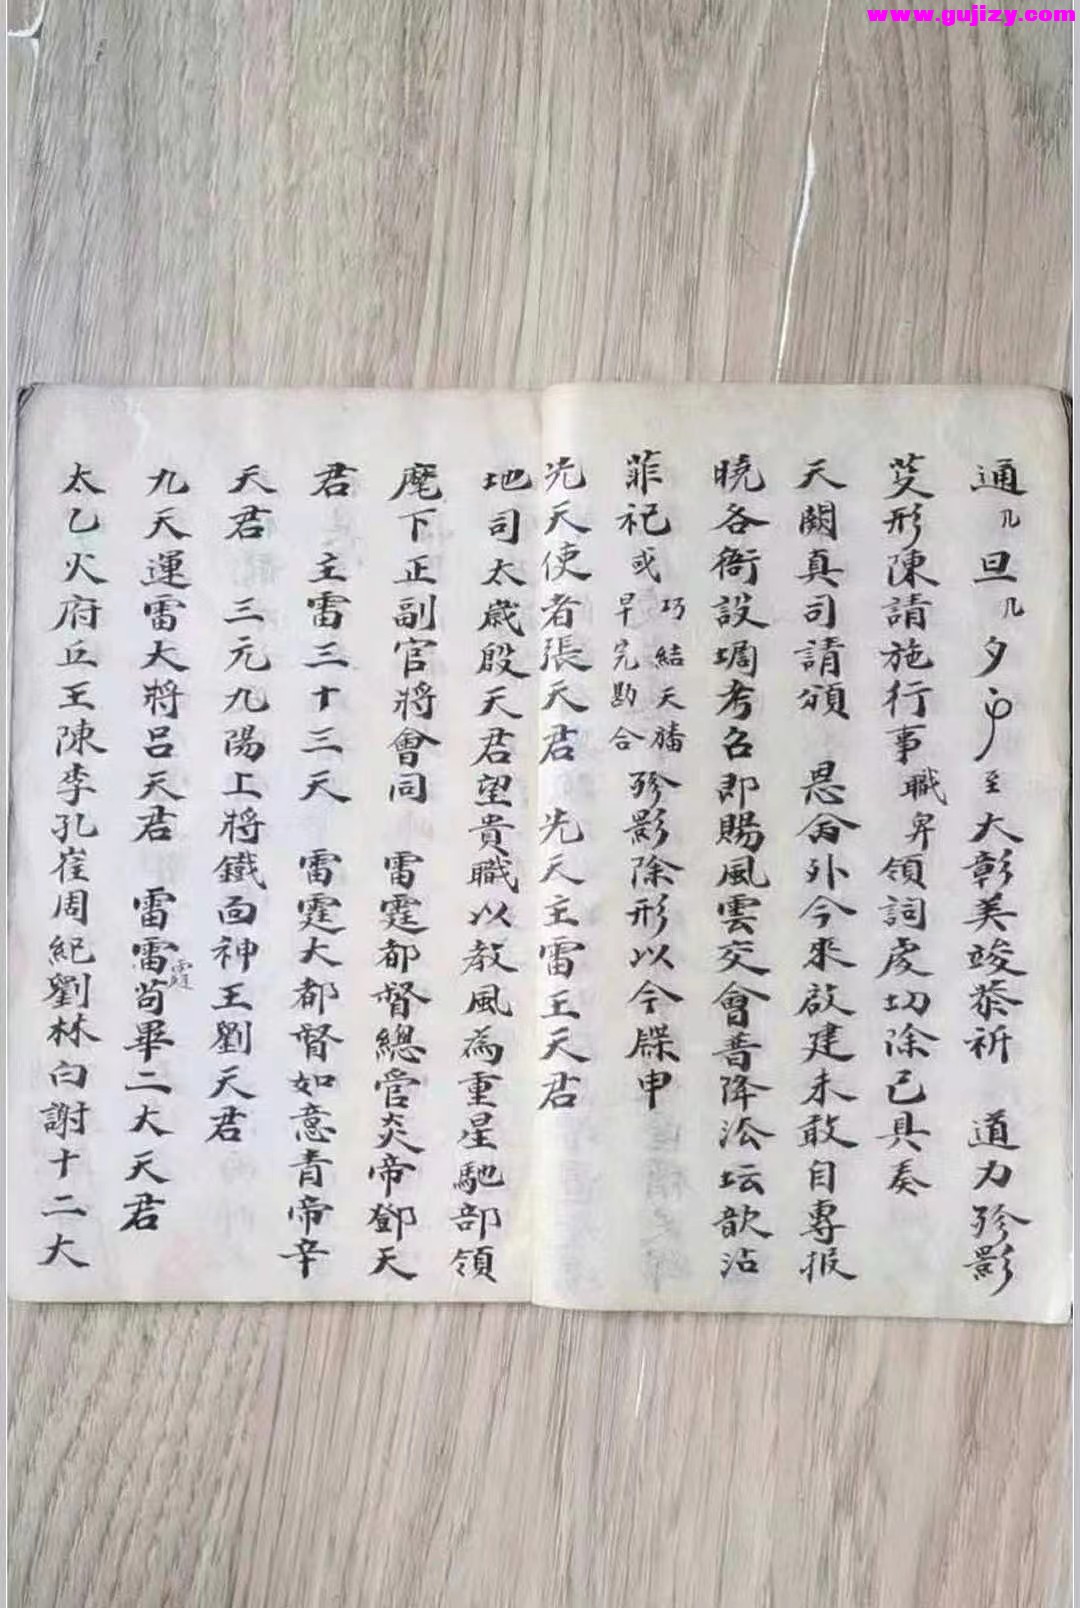 www.gujizy.com
通几旦几夕 至大彰美竣恭祈 道力殄影
芟形陳請施行事職 領詞虔切除已具奏
天闕真司請頒 恩命外今來啟建未敢自專报
曉各衙設堋考召即賜風雲交會普降法坛歆沾
菲祀或 巧結天旙 早完勘合 殄影除形以今牒申
先天使者張天君 先天主雷王天君
地司太歲殷天君望貴職以教風為重星馳部領
麾下正副官將會同 雷霆都督總管炎帝鄧天
君 主雷三十三天 雷霆大都督如意青帝辛
天君 三元九陽上將鐵面神王劉天君
九天運雷大將呂天君 雷雷霆苟畢二大天君
太乙火府丘王陳李孔崔周紀劉林白謝十二大